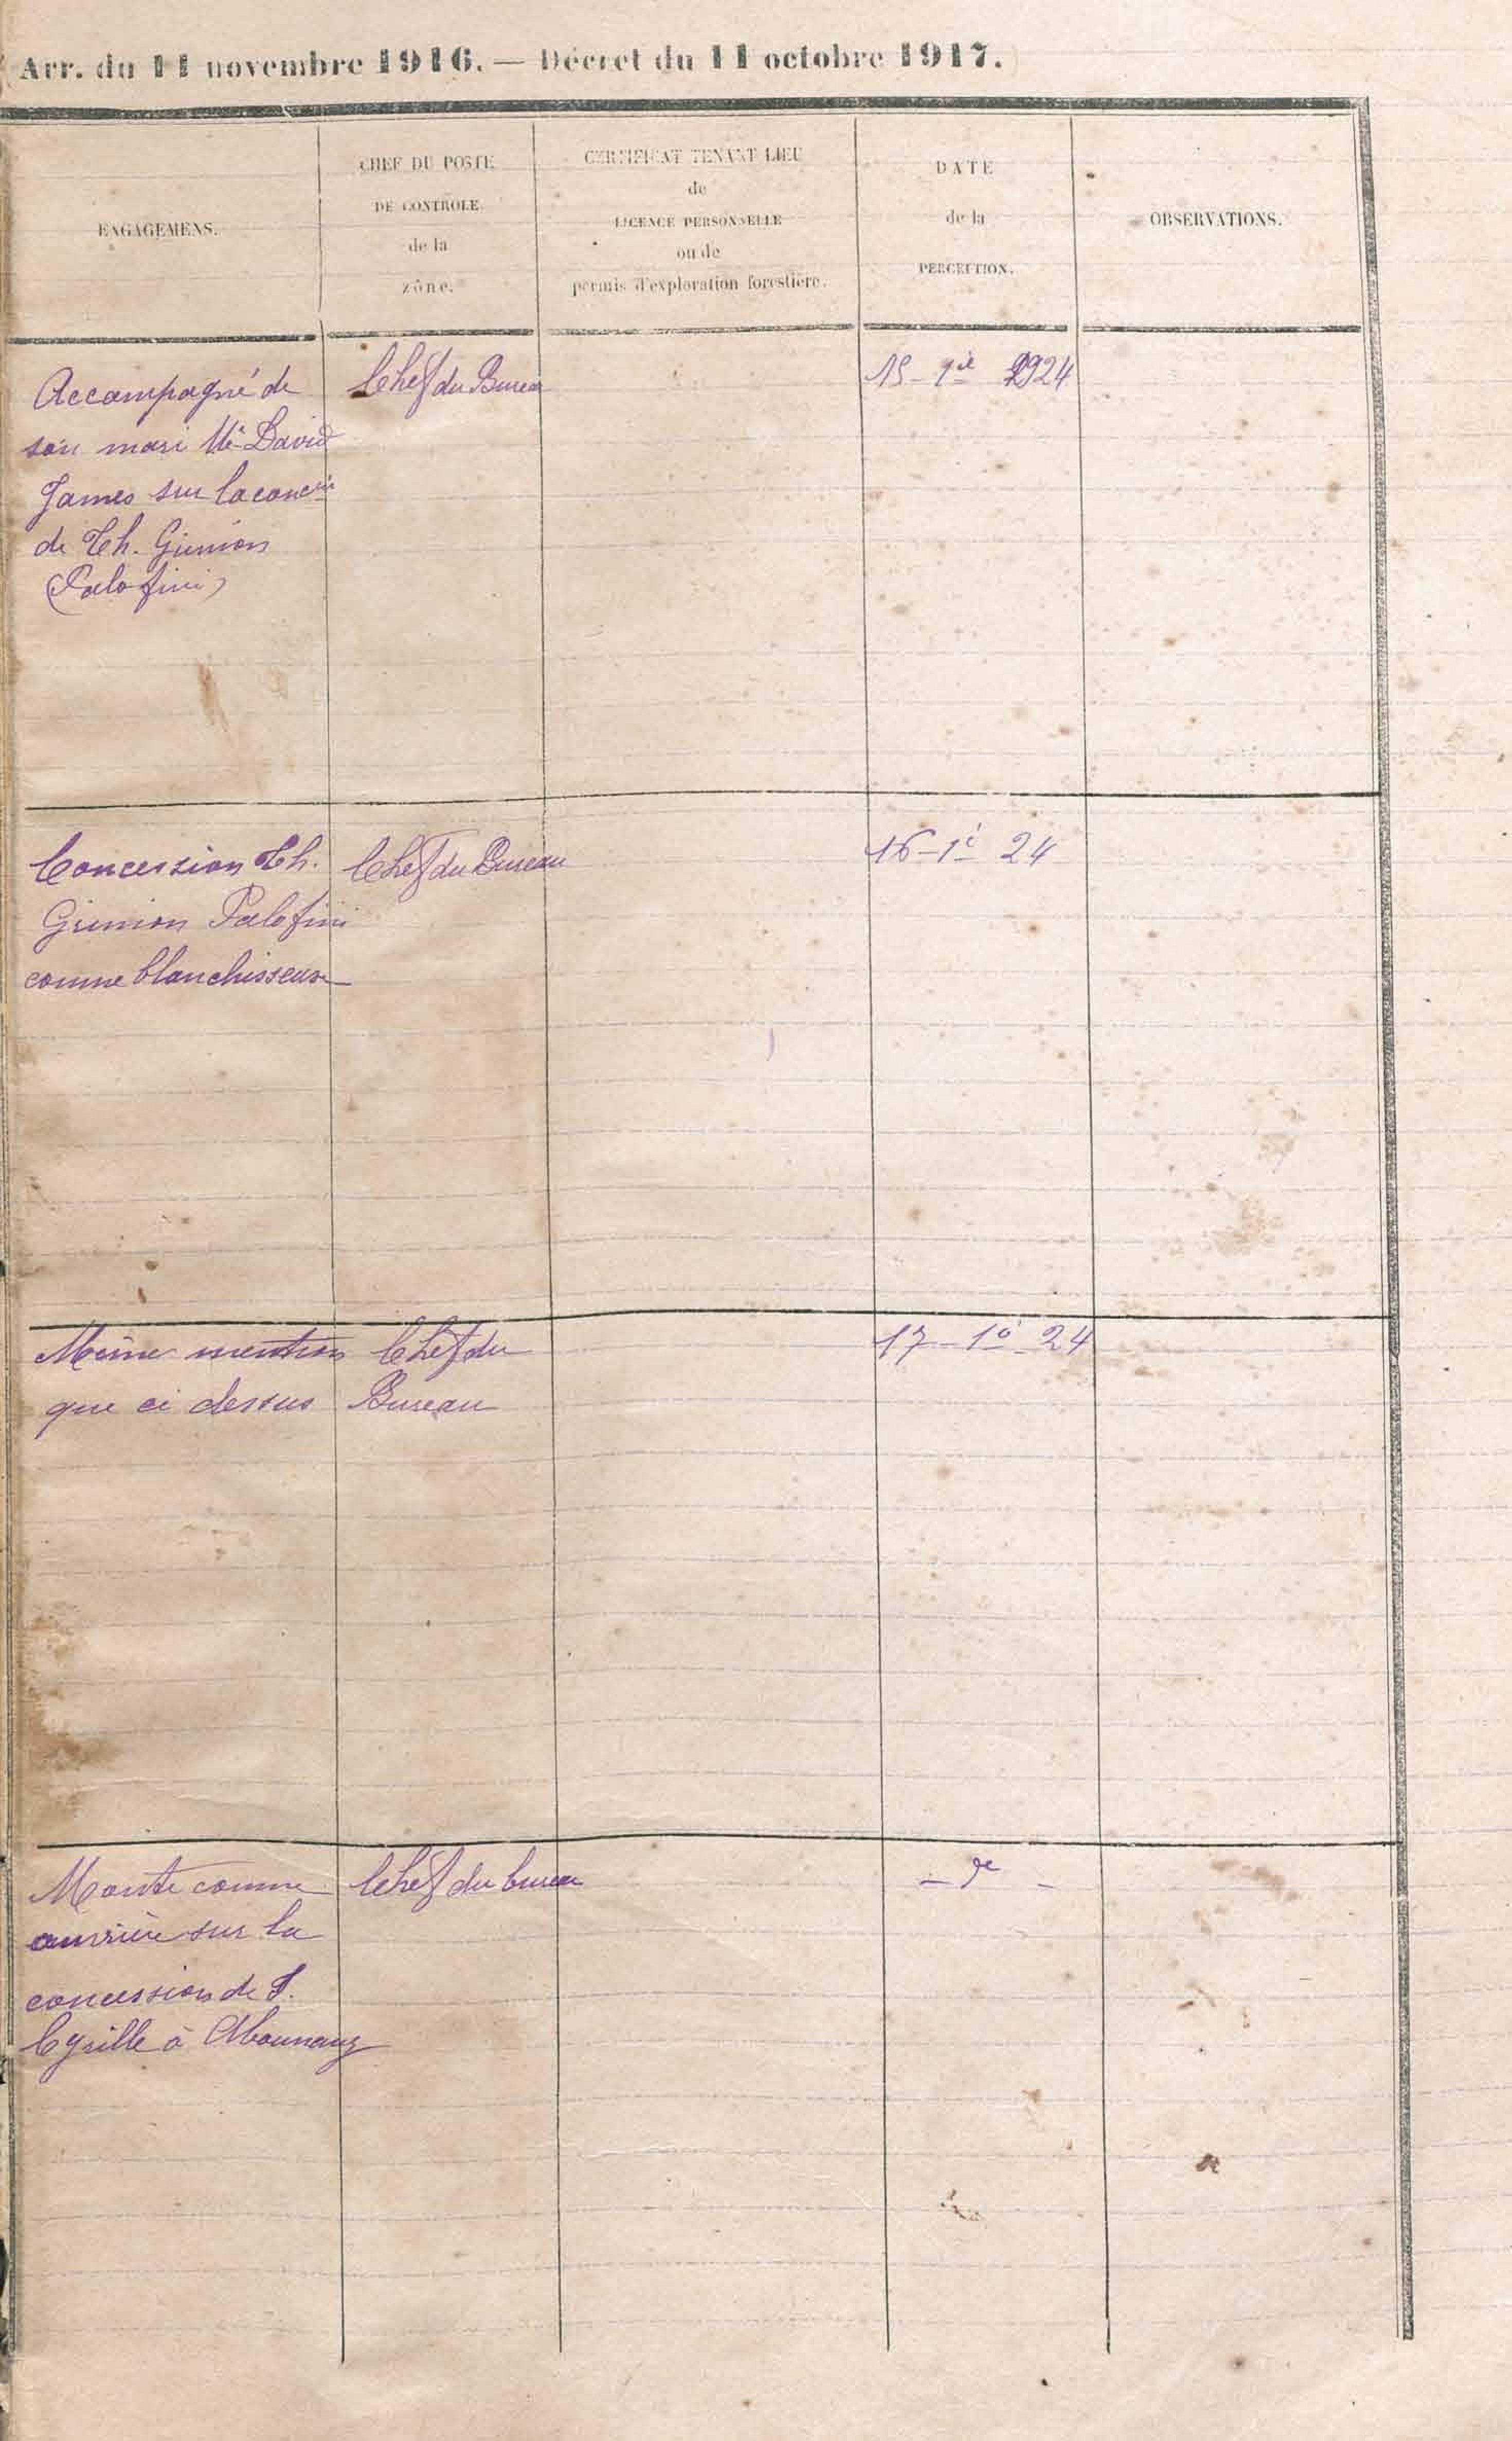 Arr. du 11 novembre 1916. — Décret du 11 octobre 1917.
ENGAGEMENS.
CHEF DU POSTE
DE CONTRÔLE
de la
zône.
CERTIFICAT TENANT LIEU
de
LICENCE PERSONNELLE
ou de
permis d'exploration forestière.
DATE
de la
PERCEPTION.
OBSERVATIONS.
Accompagné de
son mari Mr David
James sur la concon
de Th. Grumon
(Palofini)
Chef du Bureau
15 - 1er 1924
Concession Th.
Grumon Palofini
comme blanchisseuse
Chef du Bureau
16 - 1e 24
Même mention
que ci dessus
Chef du
Bureau
17 - 1o 24
Monte comme
ouvrière sur la
concession de
Cyrille à Abounamy
Chef du bureau